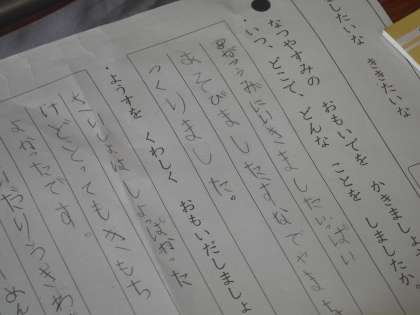 したいな　ききたいな
なつやすみの　おもいでを　かきましょ
・いつ、どこで、どんな　ことを　しましたか。
うみにいきましたいっぱい
あそびましたすなでやま
つくりました。
・ようすを　くわしく　おもいだしましょ
さいしょはしょぱかった
けどとってもきもち
よかったです。
だりうきわ